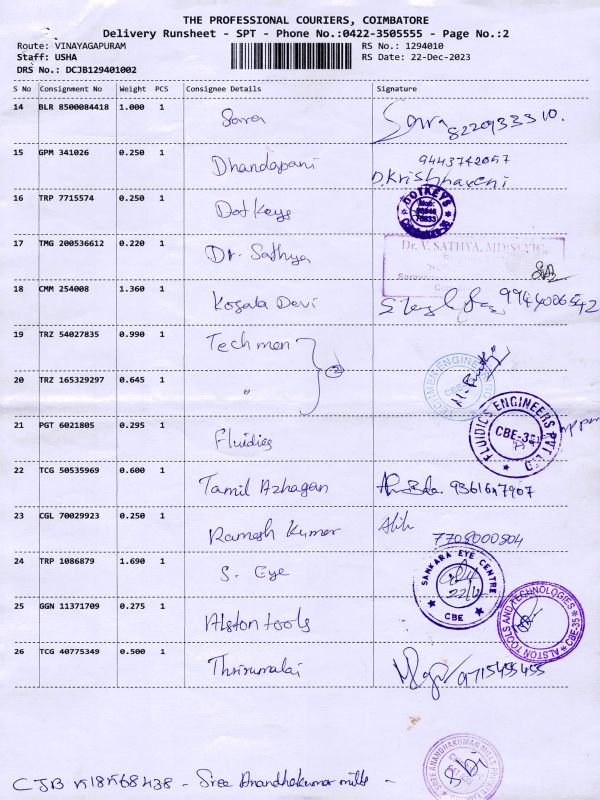 THE PROFESSIONAL COURIERS, COIMBATORE
Delivery Runsheet - SPT - Phone No.:0422-3505555 - Page No.:2
Route: VINAYAGAPURAM RS No.: 1294010
Staff: USHA RS Date: 22-Dec-2023
DRS No.: DCJB129401002
S No Consignment No Weight PCS Consignee Details Signature
14 BLR 8500084418 1.000 1 Sara Sara 8220933310.
15 GPM 341026 0.250 1 Dhandapani 9443742057
D.Krishnaveni
16 TRP 7715574 0.250 1 Dotkeys DOTKEYS
17 TMG 200536612 0.220 1 Dr. Sathya Dr. V. SATHYA, MD
18 CMM 254008 1.360 1 Kosala Devi 9944006542
19 TRZ 54027835 0.990 1 Techmen
20 TRZ 165329297 0.645 1 " 2 CBE
21 PGT 6021805 0.295 1 Fluidics FLUIDICS ENGINEERS PVT CBE-35
22 TCG 50535969 0.600 1 Tamil Azhagan 9361647907
23 CGL 70029923 0.250 1 Ramesh Kumar
7708000804
24 TRP 1086879 1.690 1 S. Eye SANKARA EYE CENTRE 22/12 CBE
25 GGN 11371709 0.275 1 Alston tools ALSTON TOOLS AND TECHNOLOGIES CBE-35
26 TCG 40775349 0.500 1 Thirumalai 9715455455
SREE ANANDHAKUMAR MILLS
CJB K18K68438 - Sree Anandhakumar mills -